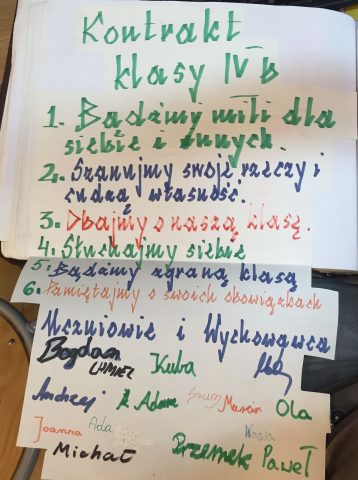 Kontrakt
klasy IV b
1. Bądźmy mili dla
siebie i innych.
2. Szanujmy swoje rzeczy i
cudzą własność.
3. Dbajmy o naszą klasę.
4. Słuchajmy siebie
5. Bądźmy zgraną klasą
6. Pamiętajmy o swoich obowiązkach
Uczniowie i Wychowawca
Bogdan
Kuba
Andrzej
Adam
Marcin
Ola
Joanna
Ada
Michał
Przemek
Paweł